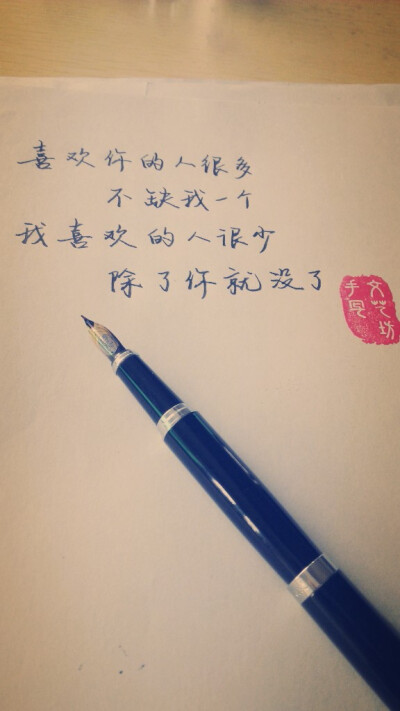 喜欢你的人很多
不缺我一个
我喜欢的人很少
除了你就没了
手写文艺坊